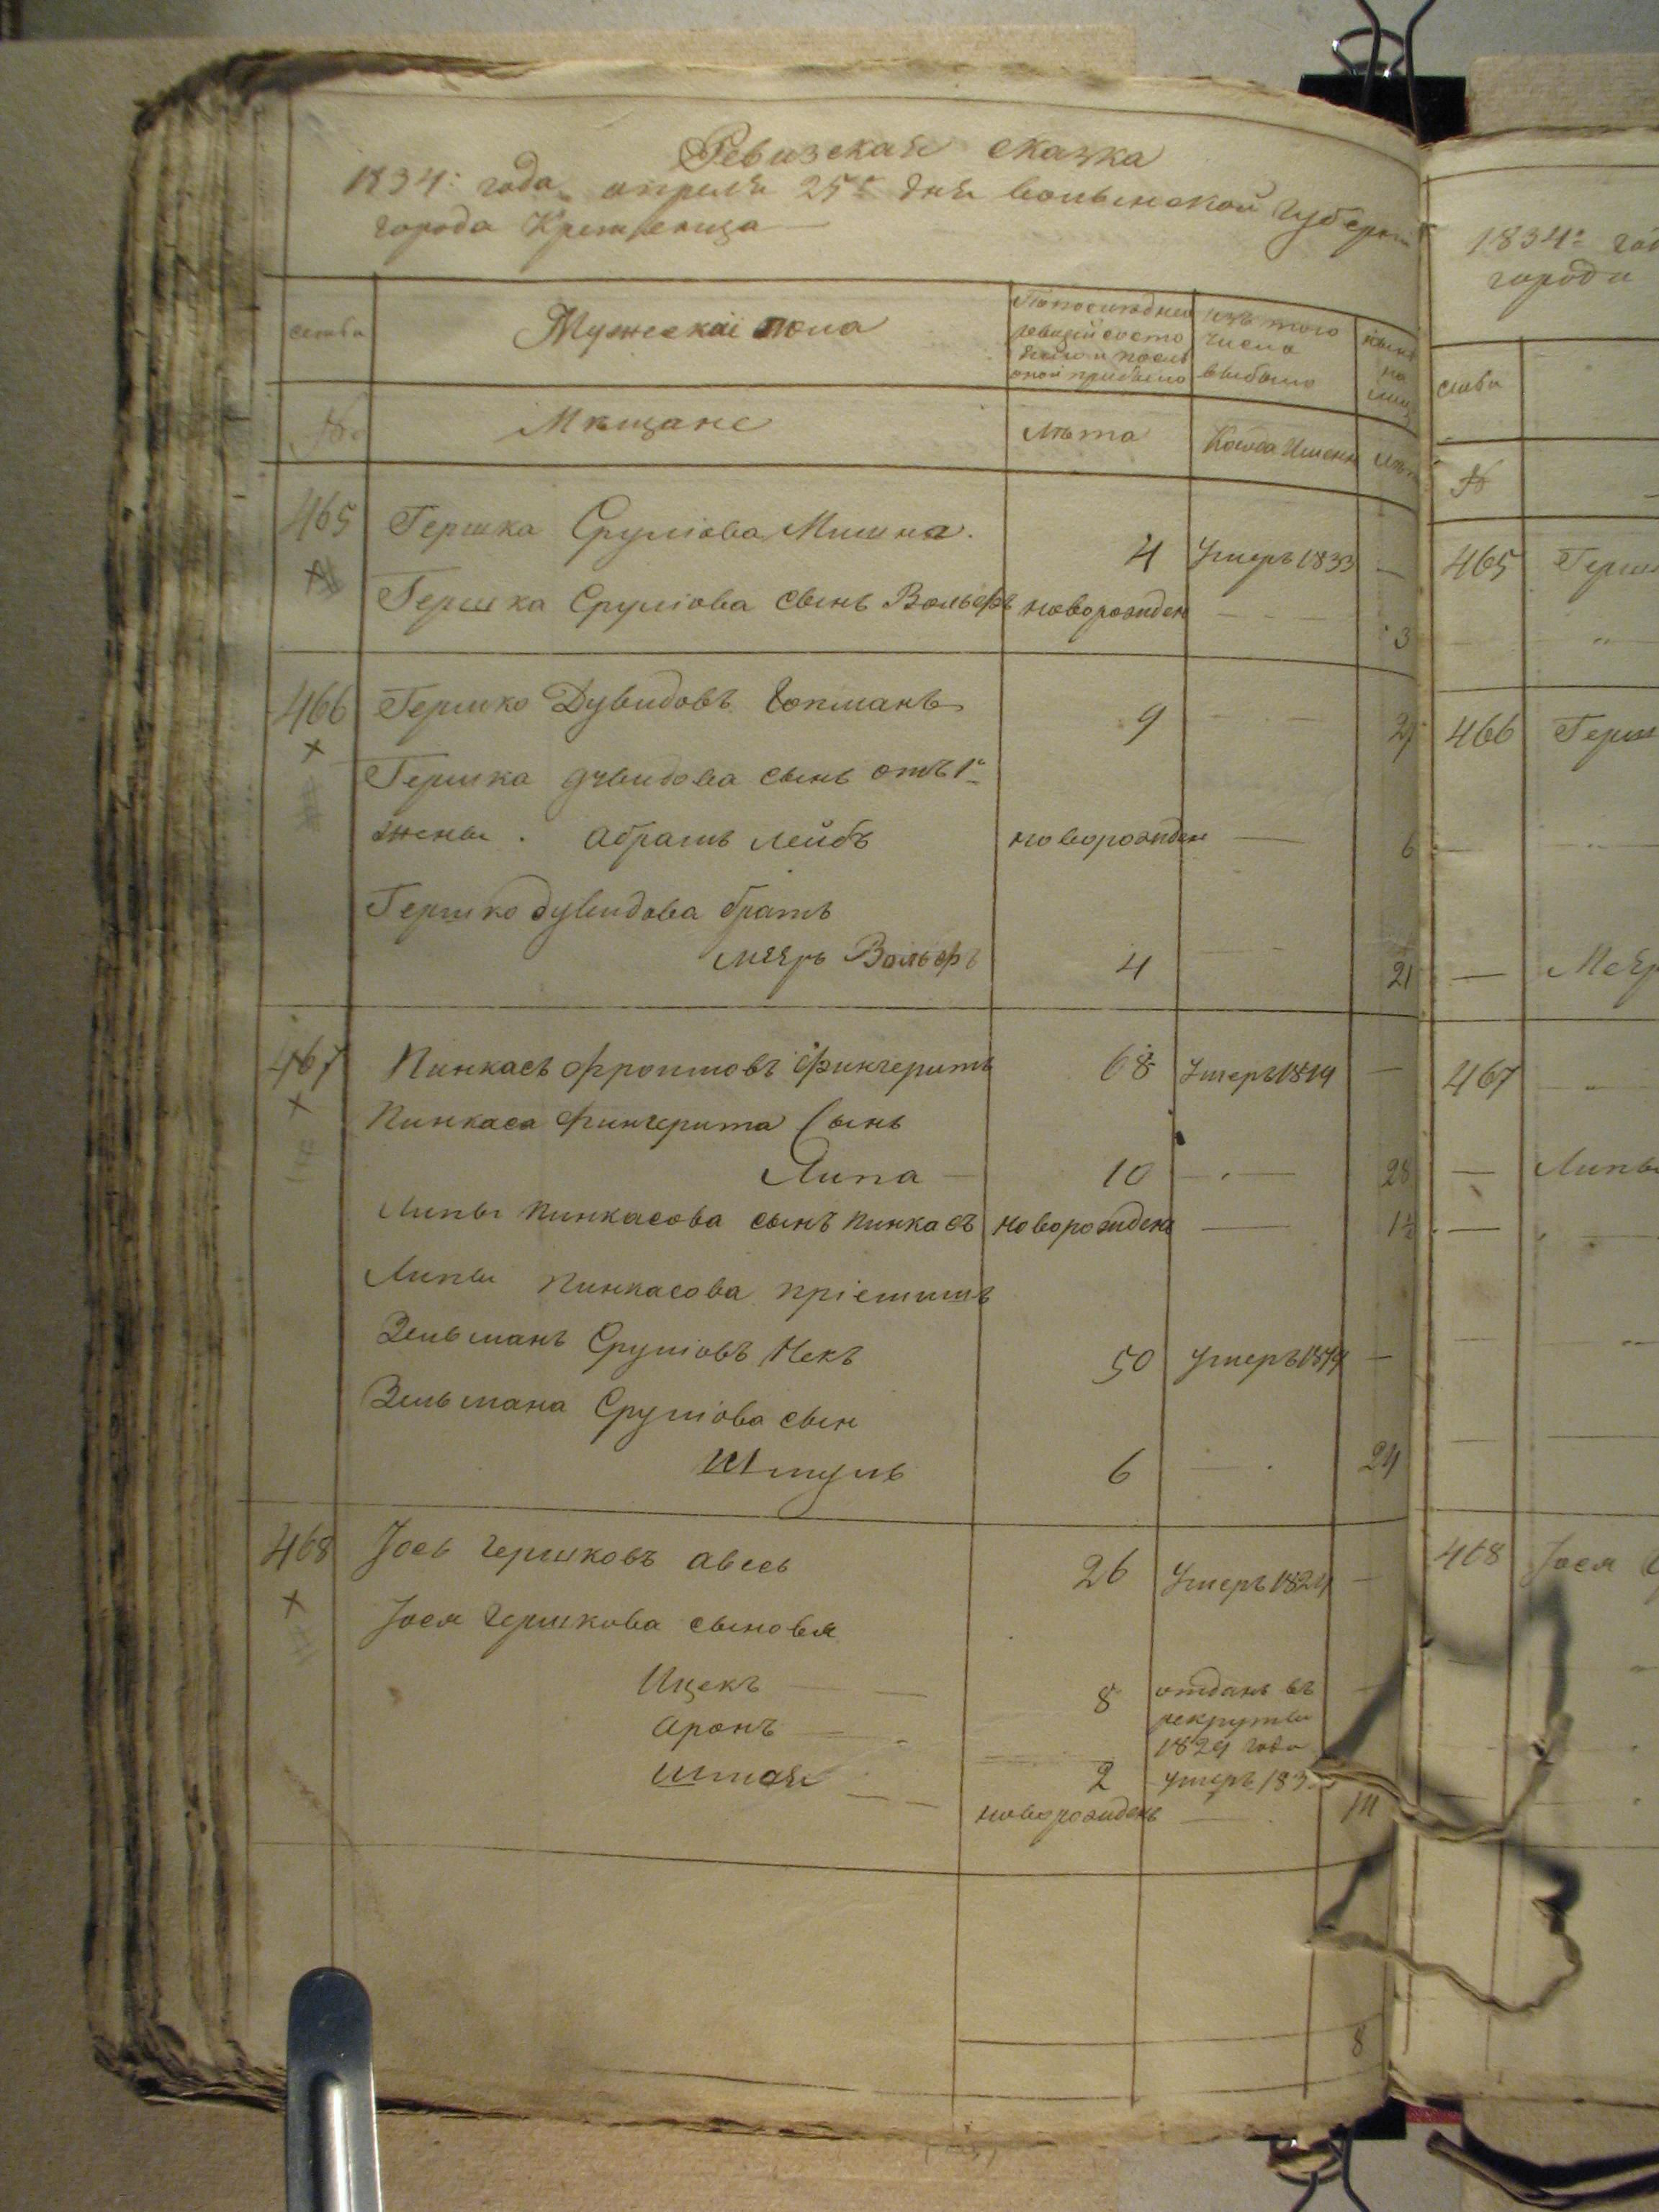 Ревизская сказка
1834: года апреля 25: дня волынской губерни
города Кременца
семьи
Мужеской пола
Попоследней ревизiи состо
изъ того числа выбыло
ныне на лицо
№
Мѣщане
Лѣта
Когда Именно
лѣта
465 Гершка Срулiова Мишна. 4 Умеръ 1833 —
Гершка Срулiова сынъ Вольфъ новорожден — - — 3
466 Гершко Дувидовъ Гопманъ 9 — - —
Гершка дувидова сынъ отъ 1й
жены . абрамъ лейбъ новорожден — 6
Гершко дувидова братъ
меяръ Вольфъ 4 21
467 Пинкасъ Фроимовъ Фингеритъ 68 Умеръ 1819 —
Пинкаса Фингерита Сынъ
Липа — 10 — . — 28
Липы Пинкасова сынъ Пинкасъ новорожденъ — 1½
Липы Пинкасова
Зельманъ Срулiовъ 50 Умеръ 1819 —
Зельмана Срулiова сын
Шмуль 6 — . 24
468 Іось Гершковъ авесь 26 Умеръ 1824 —
Іося Гершкова сыновья
Ицекъ — — 8 отданъ въ
рекруты
Аронъ — - 1829 года
Шмая 2 умеръ 183
— — новорожденъ —
8
1834: год
города
семьи
№
465 Герш
466 Герш
— Меяр
467 — „
— Липы
468 Іося